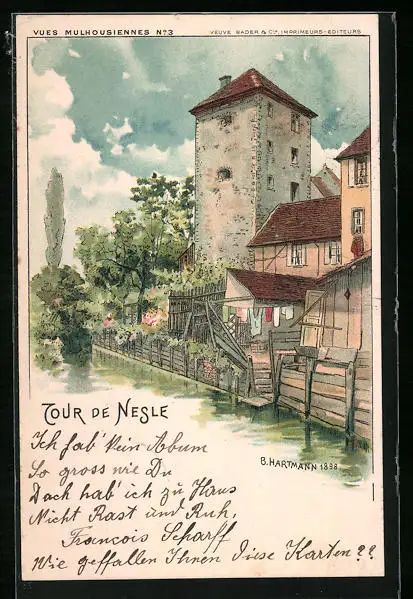 VUES MULHOUSIENNES No3
VEUVE BADER & Cie, IMPRIMEURS-EDITEURS
TOUR DE NESLE
B. HARTMANN 1898
Ich hab' kein Album
So gross wie Du
Doch hab' ich zu Haus
Nicht Rast und Ruh,
Francois Scharff
Wie geffallen Ihnen diese Karten??